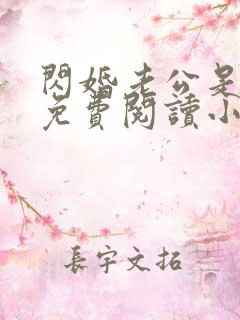 閃婚老公是
免費閱讀小
長宇文拓